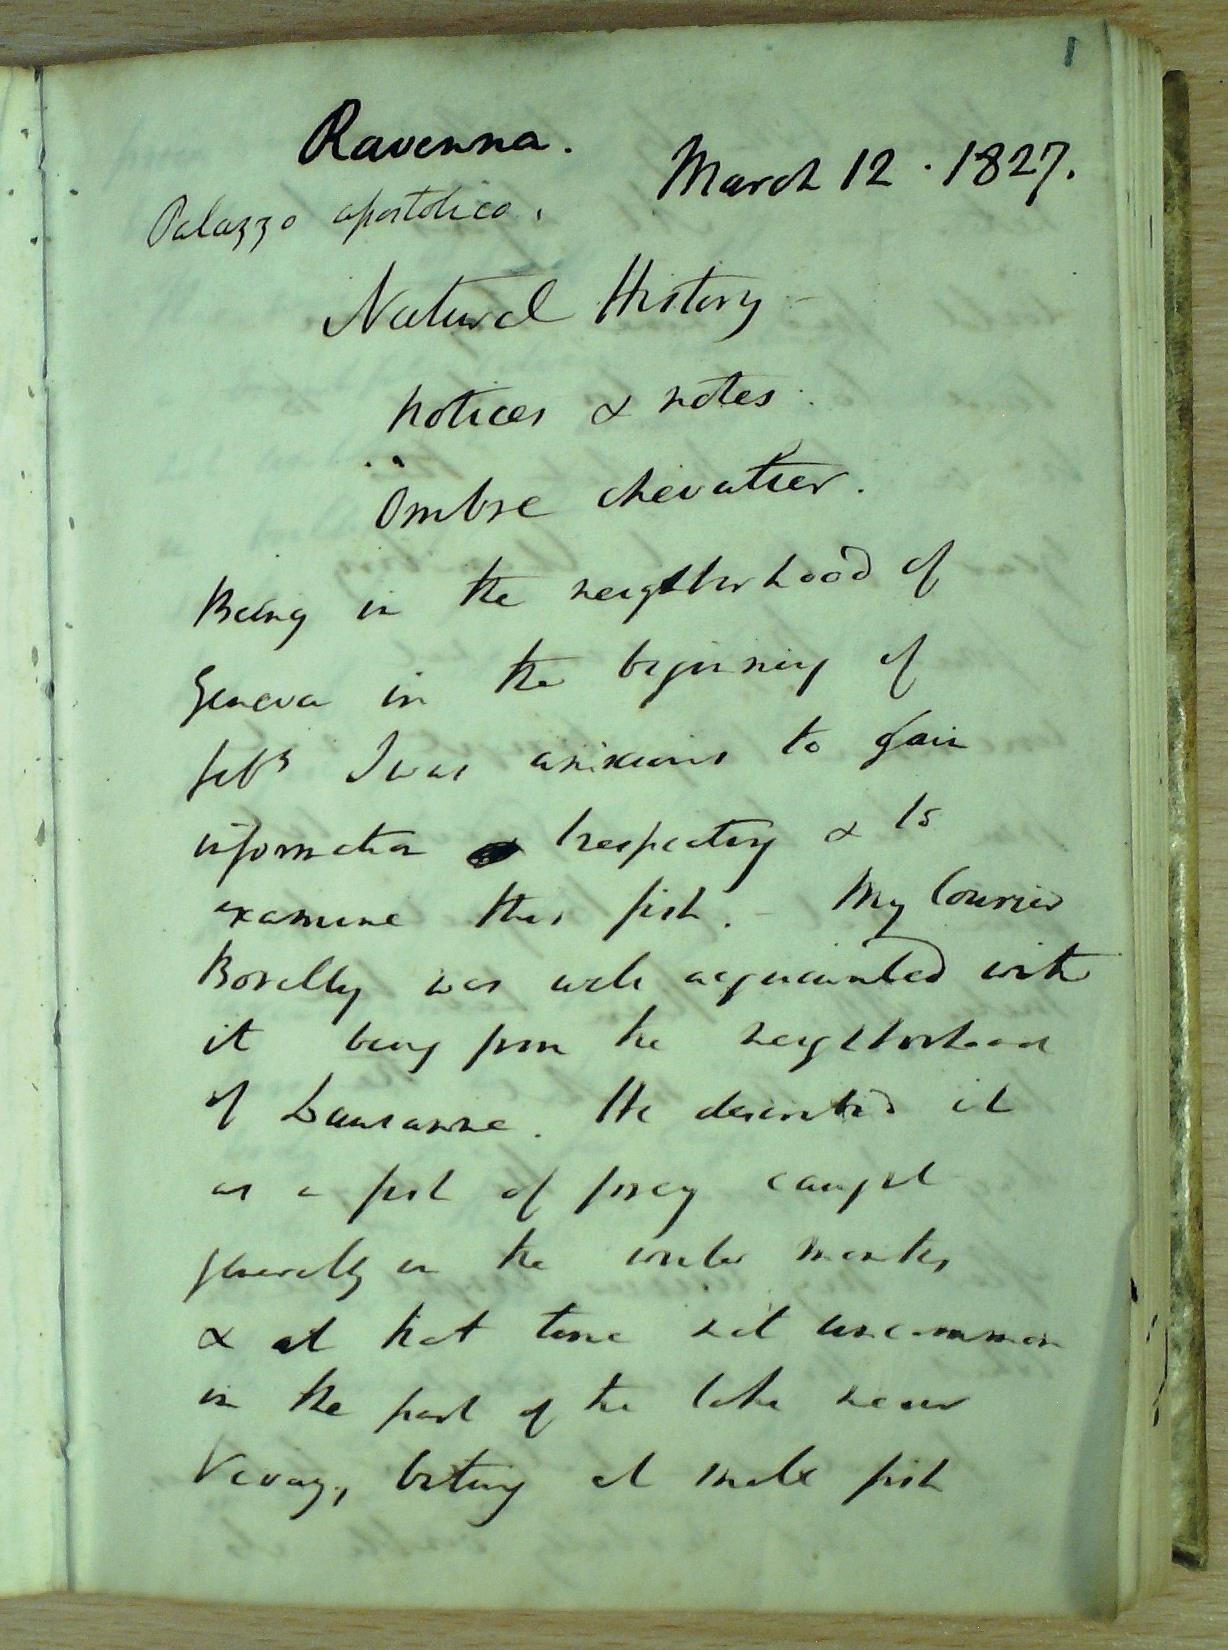 1
Ravenna.
March 12. 1827.
Palazzo apostolico.
Natural History -
notices & notes.
Ombre chevalier.
Being in the neighborhood of
Geneva in the beginning of
feby I was anxious to gain
information respecting & to
examine this fish. - My Courier
Borelly was well acquainted with
it being from the neighborhood
of Lausanne. He described it
as a fish of prey caught
generally in the winter months
& at that time not uncommon
in the part of the lake near
Vevay, biting at small fish